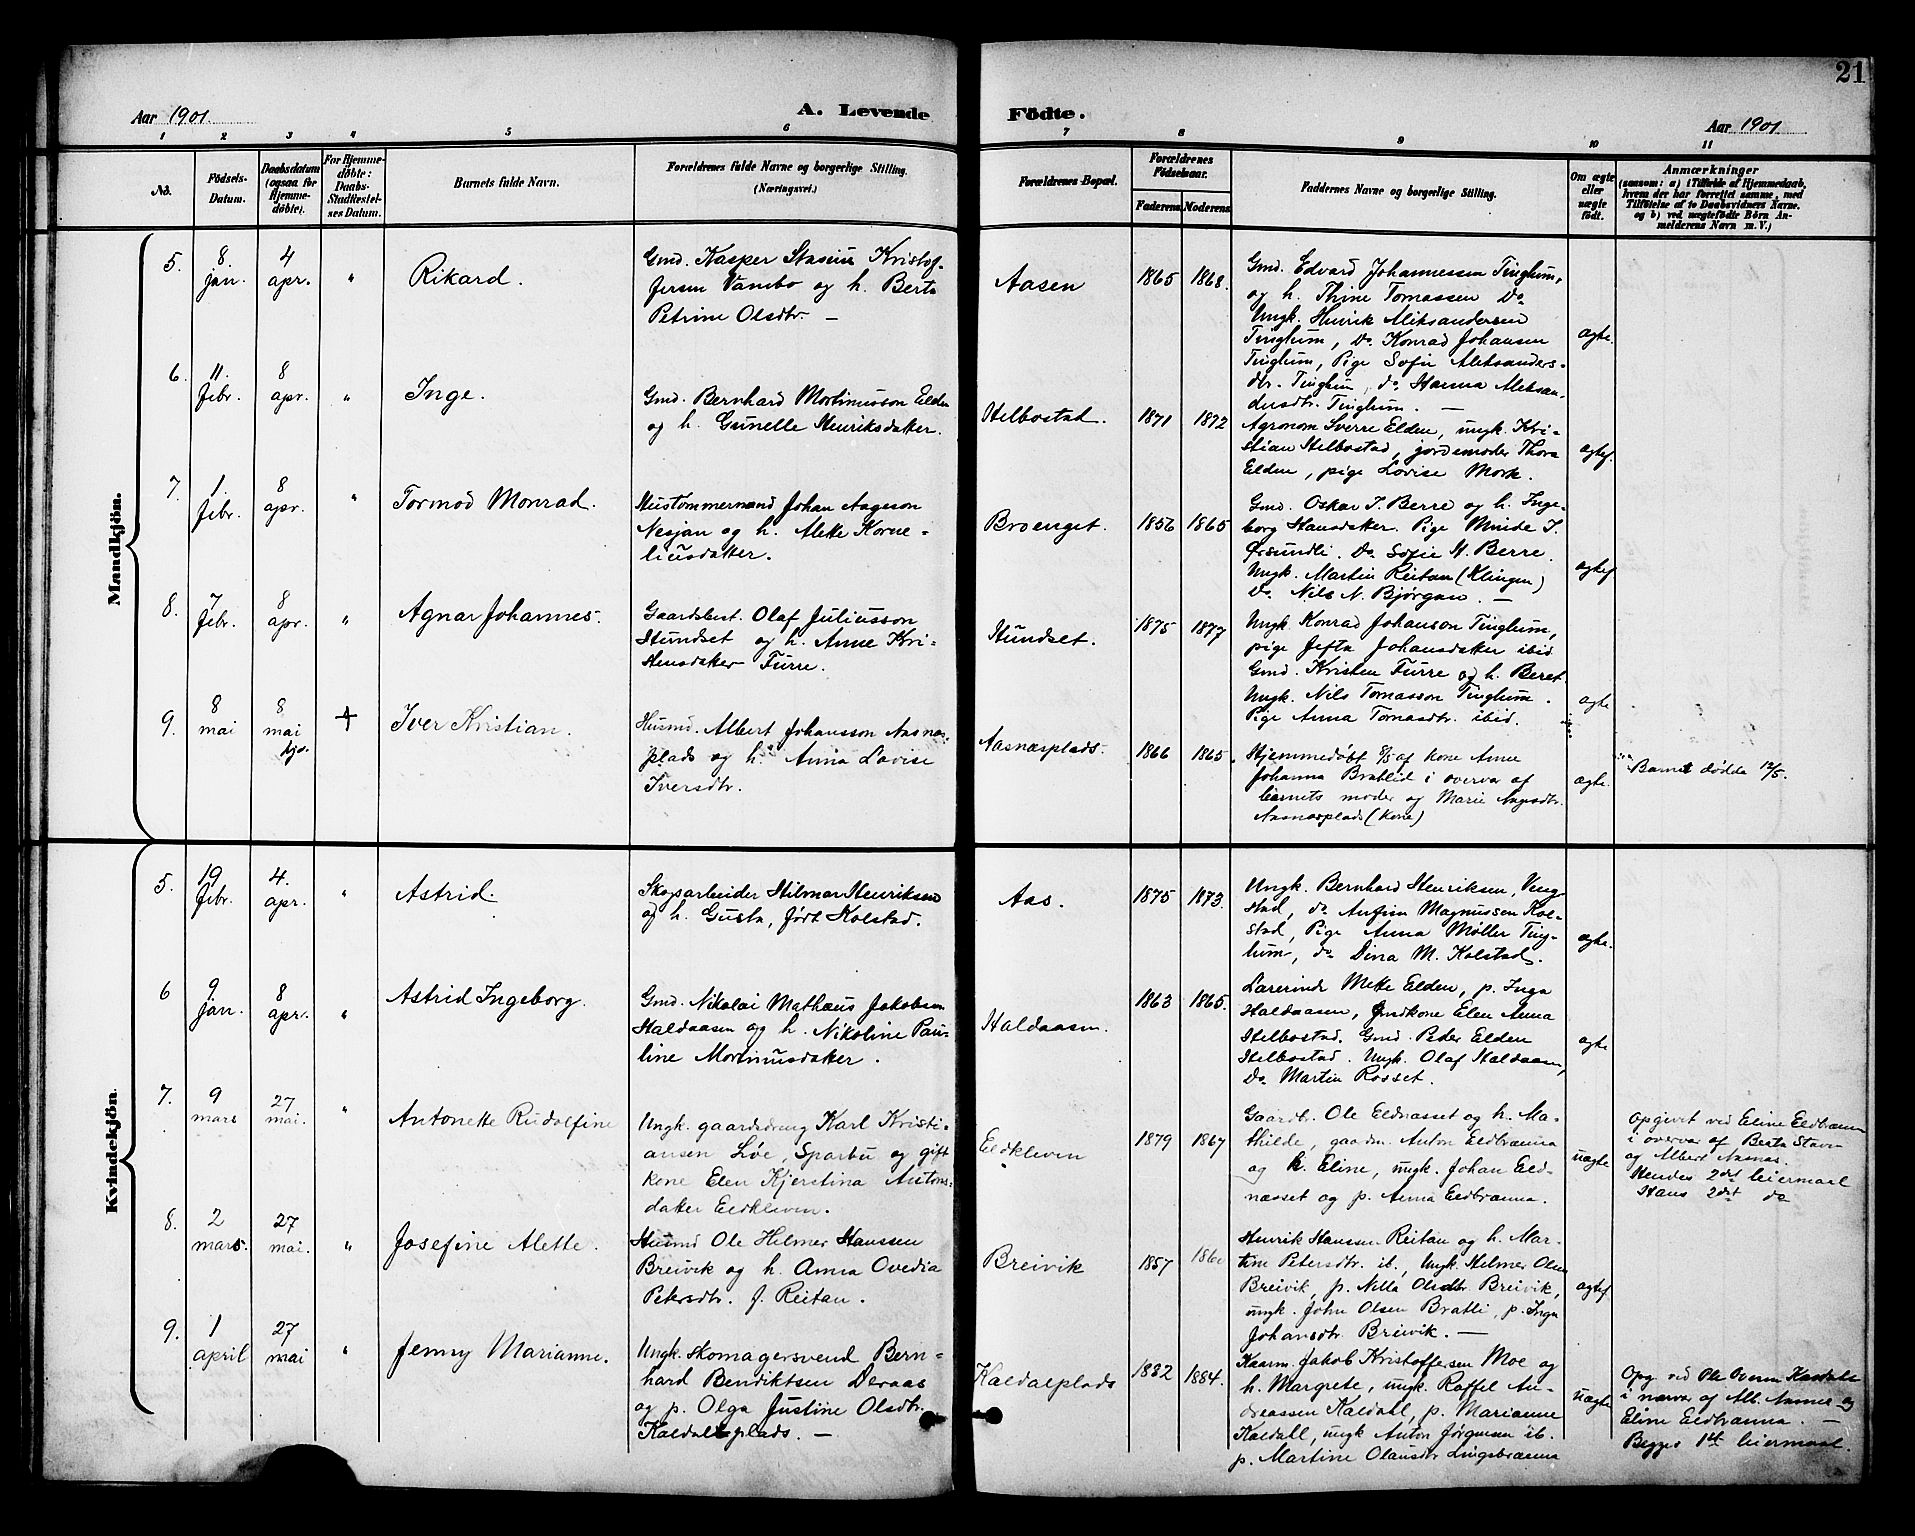 21
Aar 1901.
A. Levende
Födte.
Aar 1901
1 2 3 4 5 6 7 8 9 10 11
No.
Födsels-
Datum.
Daabsdatum
(ogsaa for
Hjemme-
döbte).
For Hjemme-
döbte:
Daabs-
Stadfæstel-
ses Datum.
Barnets fulde Navn.
Forældrenes fulde Navne og borgerlige Stilling.
(Næringsvei.)
Forældrenes Bopæl.
Forældrenes
Födselsaar.
Faderens
Moderens
Faddernes Navne og borgerlige Stilling.
Om ægte
eller
uægte
födt.
Anmærkninger
(saasom: a) i Tilfælde af Hjemmedaab,
hvem der har forrettet samme, med
Tilföielse af to Daabsvidners Navne.
og b) ved uægtefödte Börn An-
melderens Navn m. V.)
Mandkjön.
5. 8. jan. 4 apr. "
Rikard.
Gmd. Kasper Stasius Kristof-
fersen Vambo og h. Berta
Petrine Olsdtr. —
Aasen
1865 1868.
Gmd. Edvard Johannessen Tinglum,
og h. Thine Tomassen Do
Ungk. Henrik Aleksandersen
Tinglum, Do Konrad Johansen
Tinglum, Pige Sofie Aleksanders-
dtr. Tinglum, do Hanna Aleksan-
dersdtr. Tinglum. —
ægte.
6. 11. febr. 8 apr. "
Inge.
Gmd. Bernhard Mortinusson Elden
og h. Gunelle Henriksdatter.
Helbostad.
1871 1872
Agronom Sverre Elden, ungk. Kri-
stian Helbostad, jordemoder Thora
Elden, pige Lovise Mork.
ægtef.
7. 1. febr. 8 apr. "
Tormod Monrad.
Hustømmermand Johan Aageson
Nesjan og h. Alette Korne-
liusdatter.
Broenget.
1856 1865
Gmd. Oskar I. Berre og h. Inge-
borg Hansdatter. Pige Minde I.
Ørsundli. Do Sofie M. Berre.
Ungk. Martin Reitan (Klingen)
Do Nils N. Bjørgan. —
ægtef
8. 7 febr. 8 apr. "
Agnar Johannes.
Gaardsbest. Olaf Juliusson
Hundset og h. Anne Kri-
stensdatter Furre.
Hundset.
1875 1877
Ungk. Konrad Johanson Tinglum,
pige Jefta Johansdatter ibid.
Gmd. Kristen Furre og h. Beret.
Ungk. Nils Tomasson Tinglum.
Pige Anna Tomasdtr. ibid.
ægte
9. 8 mai 8 mai hjd. +
Iver Kristian.
Husmd. Albert Johansson Aasnæs-
plads og h. Anna Lovise
Iversdtr.
Aasnæsplads.
1866 1865.
Hjemmedøbt 8/5 af kone Anne
Johanna Bratlid i overvær af
barnets moder og Marie Aagesdtr.
Aasnæsplads (kone)
ægte.
Barnet dødde 12/5.
Kvindekjön.
5. 19 febr. 4. apr. "
Astrid.
Skogsarbeider Hilmar Henriksen
og h. Gusta, født Kolstad.
Aas.
1875 1873.
Ungk. Bernhard Henriksen, Veng-
stad, do Anfinn Magnussen Kol-
stad, Pige Anna Møller Ting-
lum, do Dina M. Kolstad.
ægte.
6 9 jan. 8 apr. "
Astrid Ingeborg.
Gmd. Nikolai Mathæus Jakobsen
Haldaasen og h. Nikoline Pau-
line Mortinusdatter.
Haldaasen.
1863 1865.
Lærerinde Mette Elden, p. Inga
Haldaasen, Gmdkone Elen Anna
Helbostad. Gmd. Peder Elden
Helbostad. Ungk. Olaf Haldaasen,
Do Martin Rosset.
ægte
7. 9 mars 27 mai. "
Antonette Rudolfine
Ungk. gaardsdreng Karl Kristi-
ansen Løe, Sparbu og gift
kone Elen Kjerstina Antons-
datter Eldkleven.
Eldkleven
1879 1867
Gaardbr. Ole Eldnæsset og h. Ma-
thilde, gaardm. Anton Eldbrænna
og h. Eline, ungk. Johan Eld-
næsset og p. Anna Eldbrænna.
uægte
Opgivet ved Eline Eldbrænna
i overvær af Berta Stavn
og Albert Aasnæs.
Hendes 2det leiermaal
Hans 2det do
8. 2 mars. 27 mai. "
Josefine Alette.
Husmd Ole Helmer Hanssen
Breivik og h. Anna Ovedia
Petersdtr. f. Reitan.
Breivik
1857 1860
Henrik Hanssen Reitan og h. Mar-
tine Petersdtr. ib., Ungk. Helmer Olsen
Breivik, p. Nilla Olsdtr. Breivik,
ungk. John Olsen Bratli, p. Inga
Johansdtr. Breivik. —
ægtef
9. 1 april 27 mai "
Jenny Marianne.
Ungk. skomagersvend Bern-
hard Bendiktsen Deraas
og p. Olga Justine Olsdtr.
Kaldalsplads. —
Kaldalplads
1882 1884.
Kaarm. Jakob Kristoffersen Moe og
h. Margrete, ungk. Roffel An-
dreassen Kaldall, p. Marianne
Kaldall, ungk Anton Jørgensen ib.
p. Martine Olausdtr Lingsbrænna
uægte
Opg. ved Ole Kaldall
i nærvær af Alb. Aasnes og
Eline Eldbrænna. —
Begges 1ste leiermaal.